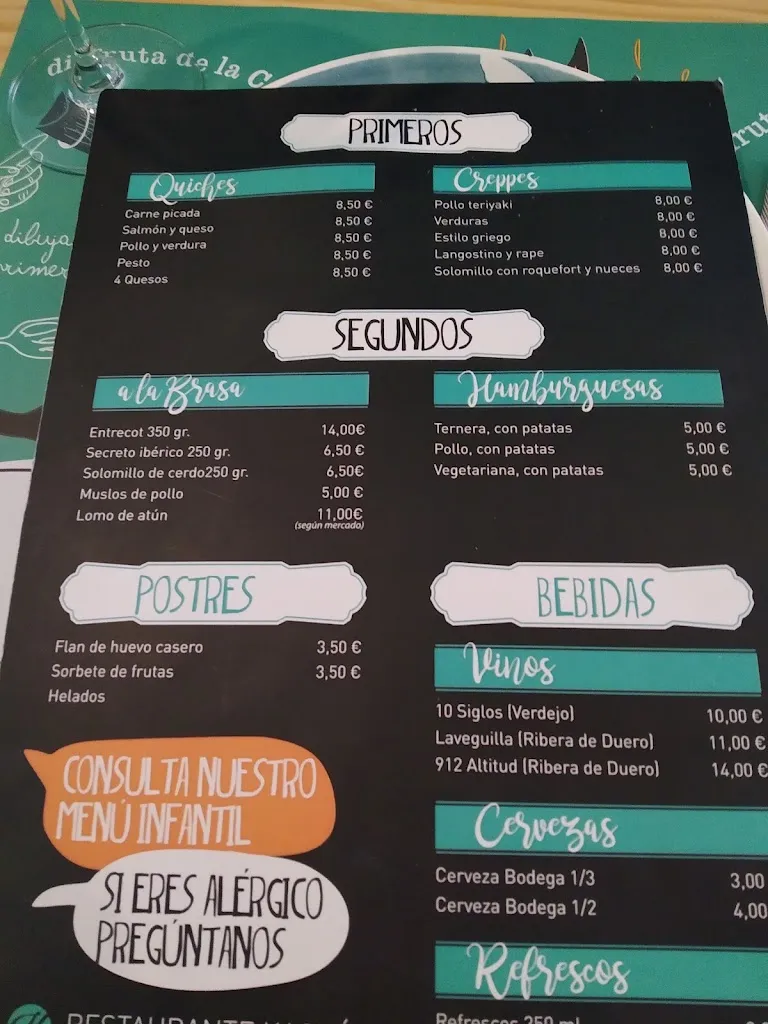 disfruta de la
dibuja
PRIMEROS
Quiches
Carne picada 8,50 €
Salmón y queso 8,50 €
Pollo y verdura 8,50 €
Pesto 8,50 €
4 Quesos 8,50 €
Creppes
Pollo teriyaki 8,00 €
Verduras 8,00 €
Estilo griego 8,00 €
Langostino y rape 8,00 €
Solomillo con roquefort y nueces 8,00 €
SEGUNDOS
a la Brasa
Entrecot 350 gr. 14,00€
Secreto ibérico 250 gr. 6,50 €
Solomillo de cerdo250 gr. 6,50€
Muslos de pollo 5,00 €
Lomo de atún 11,00€
(según mercado)
Hamburguesas
Ternera, con patatas 5,00 €
Pollo, con patatas 5,00 €
Vegetariana, con patatas 5,00 €
POSTRES
Flan de huevo casero 3,50 €
Sorbete de frutas 3,50 €
Helados
CONSULTA NUESTRO
MENÚ INFANTIL
SI ERES ALÉRGICO
PREGÚNTANOS
BEBIDAS
Vinos
10 Siglos (Verdejo) 10,00 €
Laveguilla (Ribera de Duero) 11,00 €
912 Altitud (Ribera de Duero) 14,00 €
Cervezas
Cerveza Bodega 1/3 3,00
Cerveza Bodega 1/2 4,00
Refrescos
Refrescos 250 ml
RESTAURANTE